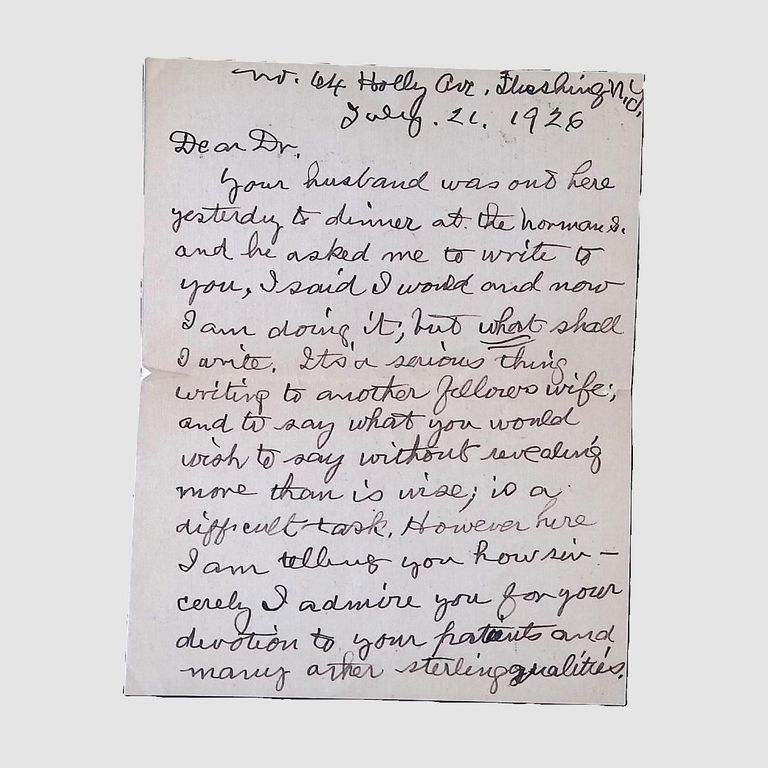 No. 64 Holly Ave, Flushing N.Y.
July. 21. 1926
Dear Dr.
Your husband was out here
yesterday to dinner at the Normans.
and he asked me to write to
you, I said I would and now
I am doing it; but what shall
I write. Its a serious thing
writing to another fellows wife;
and to say what you would
wish to say without revealing
more than is wise; is a
difficult task. However here
I am telling you how sin-
cerely I admire you for your
devotion to your patients and
many other sterling qualities.